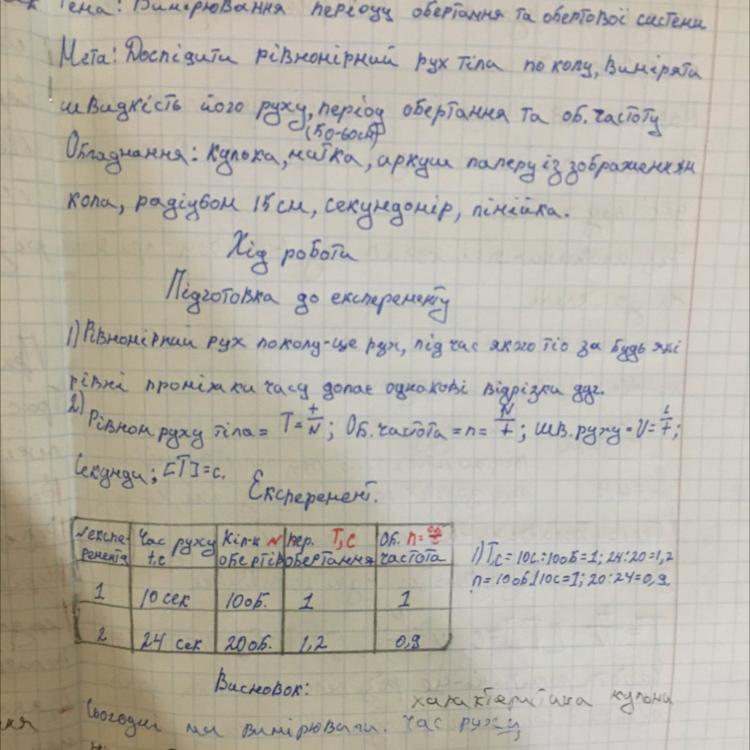 Тема: Вимірювання періоду обертання та обертової системи
Мета: Дослідити рівномірний рух тіла по колу, виміряти
швидкість його руху, період обертання та об. частоту
(50-60см)
Обладнання: кулька, нитка, аркуш паперу із зображенням
кола, радіувом 15 см, секундомір, лінійка.
Хід роботи
Підготовка до експеременту
1) Рівномірний рух по колу-це рух, під час якого тіо за будь які
рівні проміжки часу долає однакові відрізки дуг.
2) Рівном руху тіла = T = t/N; Об. частота = n = N/t; шв. руху = V = l/t;
Секунди; [T] = c.
Експеремент.
N експе- Час руху Кіл-к N пер. T,c Об. n=
ремента t,c обертів обертання частота
1 10 сек 10об. 1 1
2 24 сек 20об. 1,2 0,9
1) T,c = 10c:10об = 1; 24:20 = 1,2
n = 10об/10c = 1; 20:24 = 0,9
Висновок:
характеритика
Сьогодні ми вимірювали. час руху